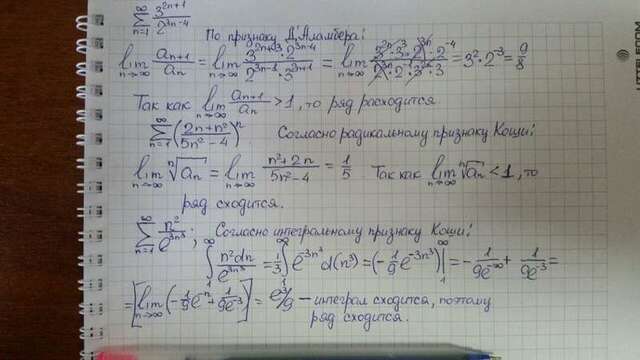 ∞∑n=1 3^(2n+1)/2^(3n-4)
По признаку Д'Аламбера:
lim n→∞ a_(n+1)/a_n = lim n→∞ 3^(2n+3)·2^(3n-4)/2^(3n-1)·3^(2n+1) = lim n→∞ 3^(2n)·3^3·2^(3n)·2^(-4)/2^(3n)·2^(-1)·3^(2n)·3 = 3^2·2^(-3) = 9/8
Так как lim n→∞ a_(n+1)/a_n > 1, то ряд расходится
∞∑n=1 (2n+n^2/5n^2-4)^n. Согласно радикальному признаку Коши:
lim n→∞ ⁿ√a_n = lim n→∞ n^2+2n/5n^2-4 = 1/5 Так как lim n→∞ ⁿ√a_n < 1, то
ряд сходится.
∞∑n=1 n^2/e^(3n^3); Согласно интегральному признаку Коши:
∞∫1 n^2dn/e^(3n^3) = 1/3 ∞∫1 e^(-3n^3) d(n^3) = (-1/9 e^(-3n^3))|∞1 = -1/9e^∞ + 1/9e^(-3) =
= [lim n→∞ (-1/9 e^n + 1/9e^(-3))] = e^3/9 – интеграл сходится, поэтому
ряд сходится.